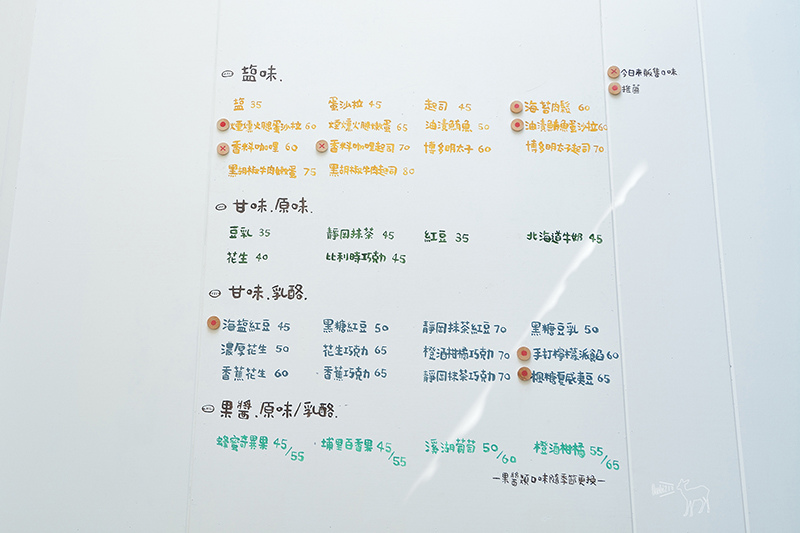 塩味.
今日未販售口味
推薦
塩 35 蛋沙拉 45 起司 45 海苔肉鬆 60
煙燻火腿蛋沙拉 60 煙燻火腿嫩蛋 65 油漬鮪魚 50 油漬鮪魚蛋沙拉 60
香料咖哩 60 香料咖哩起司 70 博多明太子 60 博多明太子起司 70
黑胡椒牛肉嫩蛋 75 黑胡椒牛肉起司 80
甘味.原味.
豆乳 35 靜岡抹茶 45 紅豆 35 北海道牛奶 45
花生 40 比利時巧克力 45
甘味.乳酪.
海塩紅豆 45 黑糖紅豆 50 靜岡抹茶紅豆 70 黑糖豆乳 50
濃厚花生 50 花生巧克力 65 橙酒柑橘巧克力 70 手釘檸檬派餡 60
香蕉花生 60 香蕉巧克力 65 靜岡抹茶巧克力 70 楓糖夏威夷豆 65
果醬.原味/乳酪.
蜂蜜奇異果 45/55 埔里百香果 45/55 溪湖葡萄 50/60 橙酒柑橘 55/65
—果醬類口味隨季節更換—